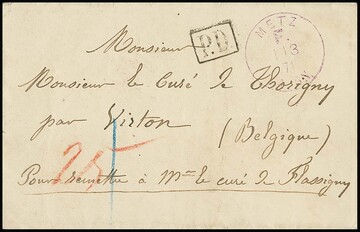 METZ
P.D.
Monsieur
Monsieur le Curé de Thorigny
par Virton
(Belgique)
25
Pour remettre à Mr le curé de Flassigny